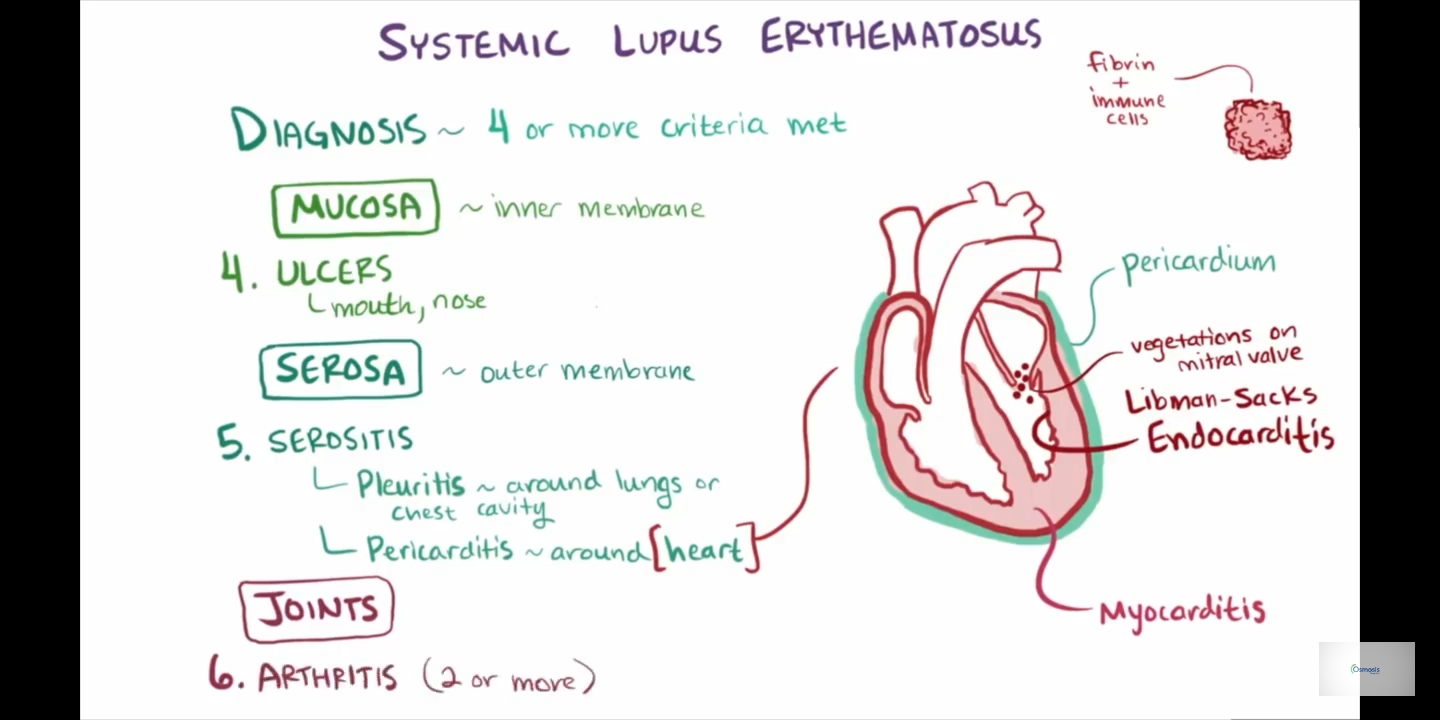 SYSTEMIC LUPUS ERYTHEMATOSUS
DIAGNOSIS ~ 4 or more criteria met
MUCOSA ~ inner membrane
4. ULCERS
mouth, nose
SEROSA ~ outer membrane
5. SEROSITIS
Pleuritis ~ around lungs or
chest cavity
Pericarditis ~ around [heart]
JOINTS
6. ARTHRITIS (2 or more)
fibrin
+
immune
cells
pericardium
vegetations on
mitral valve
Libman-Sacks
Endocarditis
Myocarditis
Osmosis